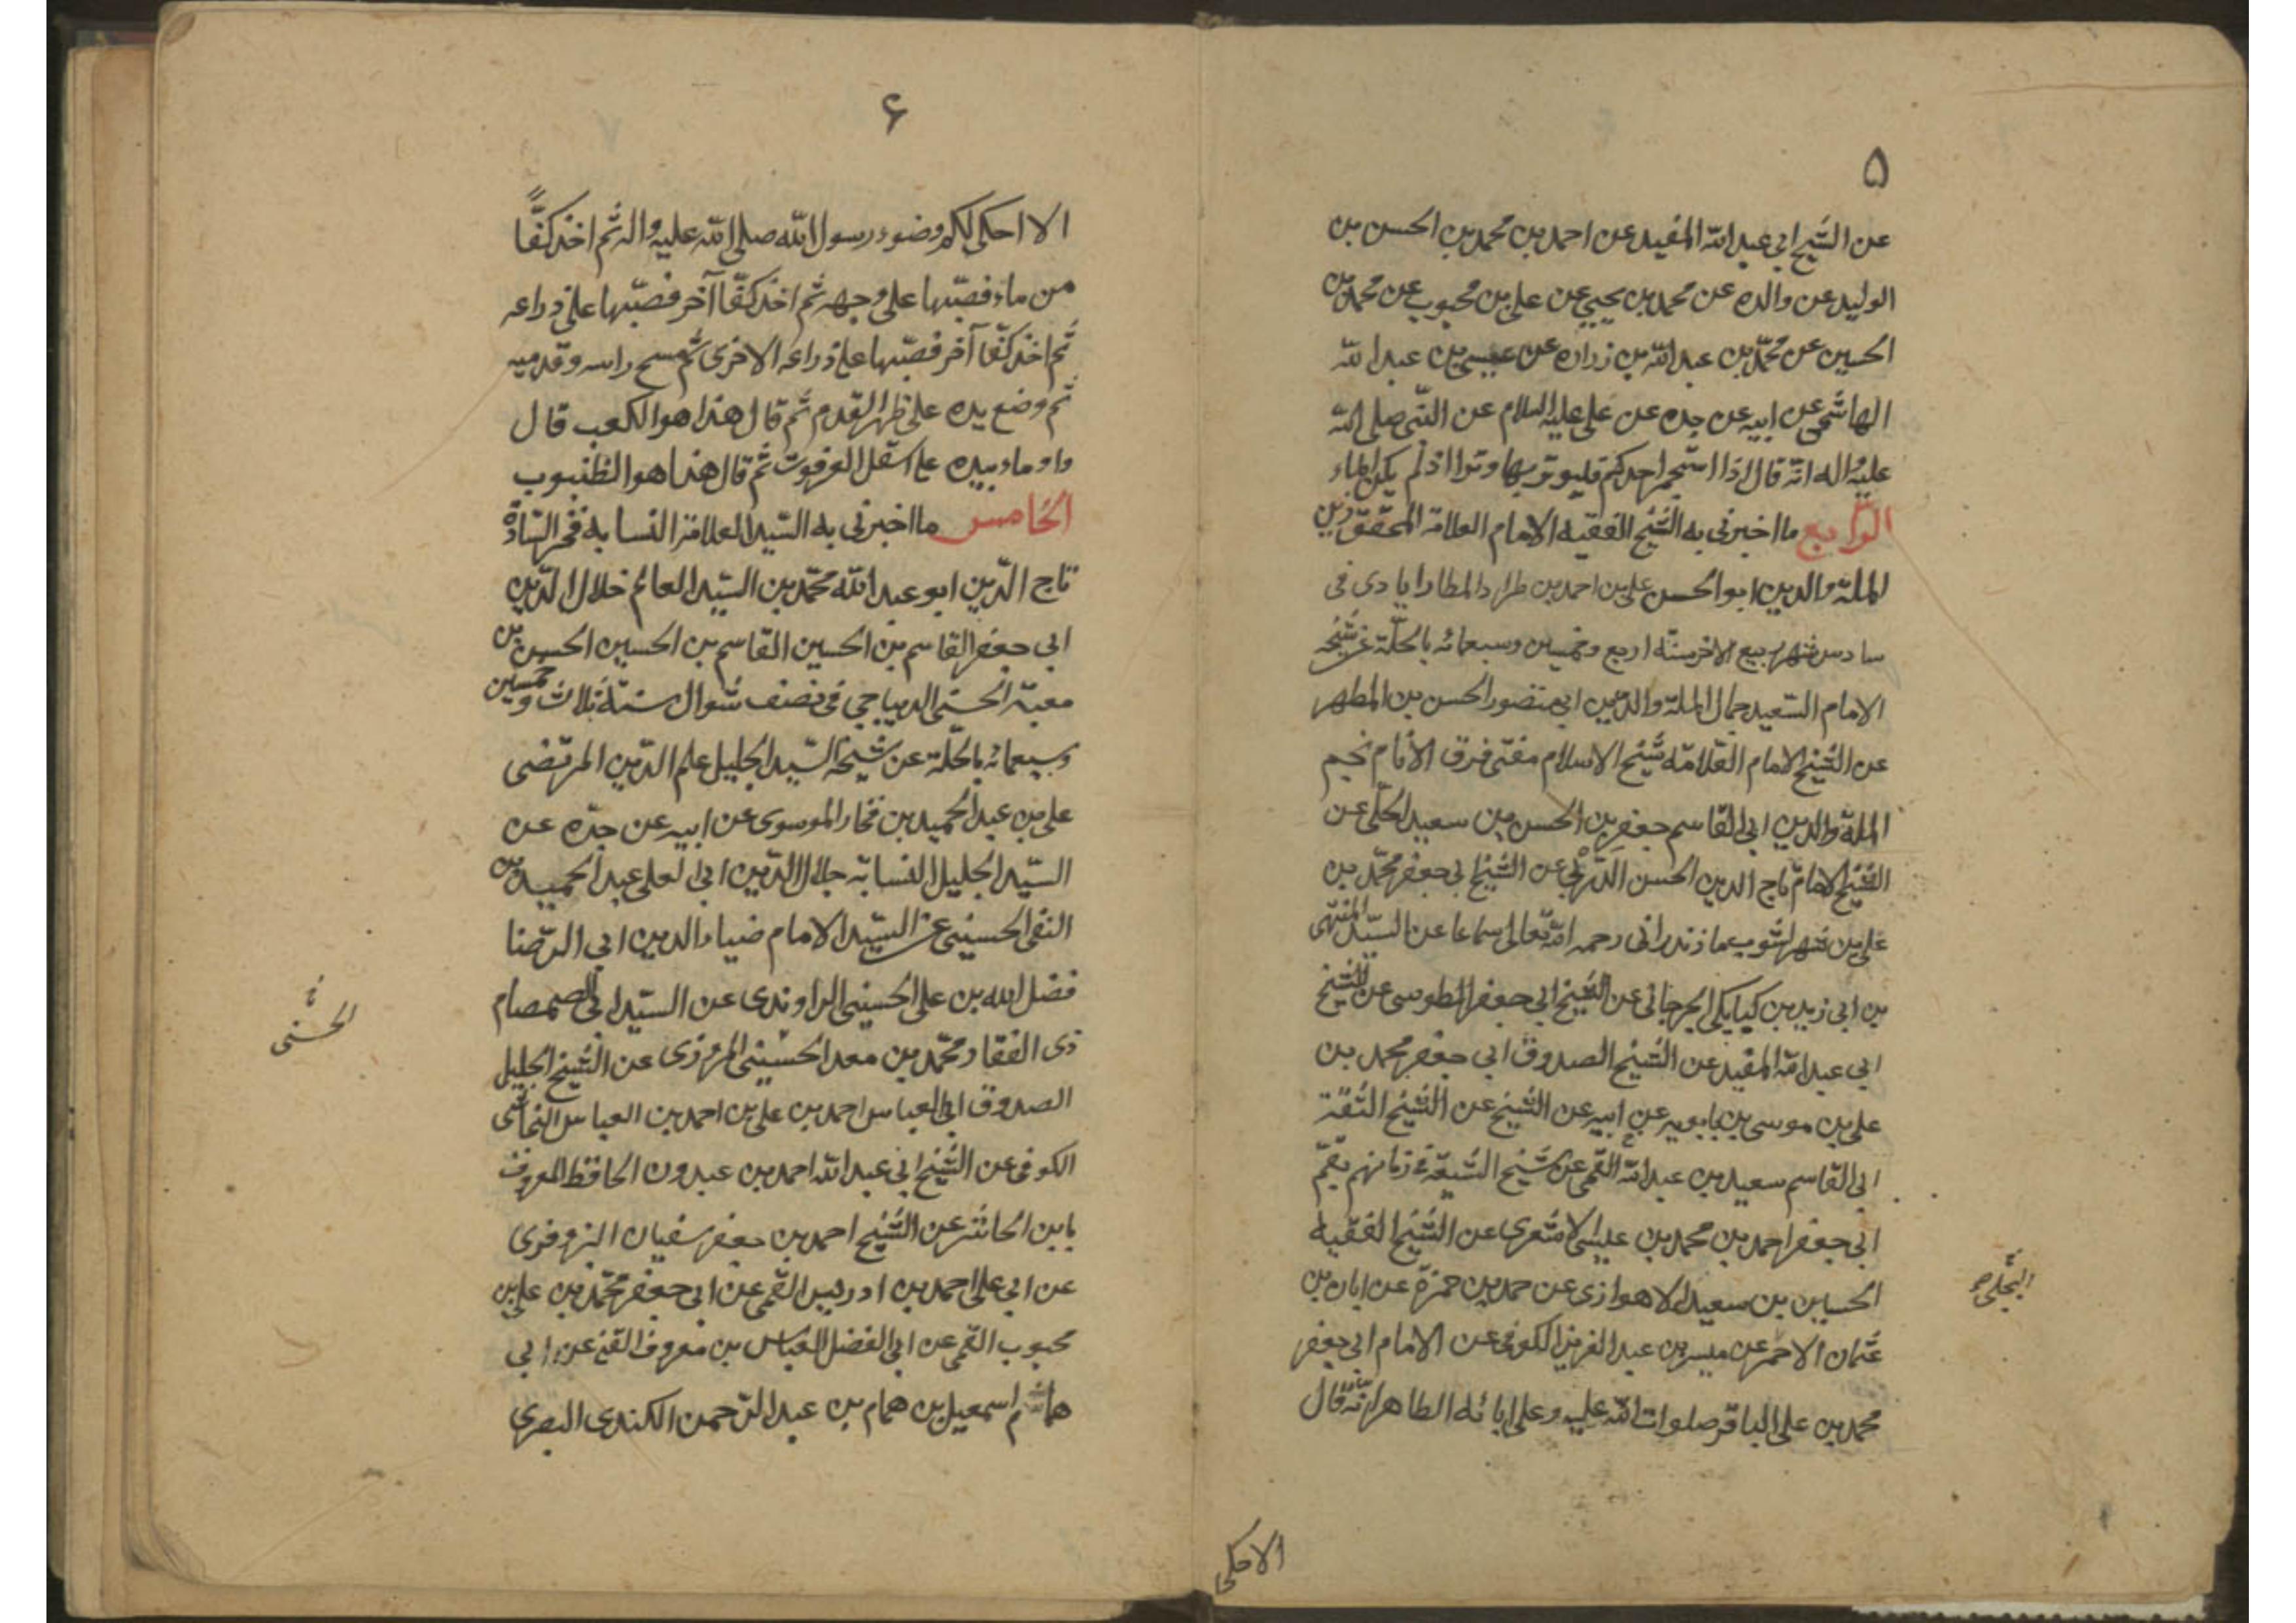 ۵
عن الشیخ ابی عبد الله المفید عن احمد بن محمد بن الحسن بن
الولید عن والده عن محمد بن یحیی عن علی بن محبوب عن محمد بن
الحسین عن محمّد بن عبد الله بن زراره عن عیسی بن عبد الله
الهاشمی عن ابیه عن جده عن علی علیه السلام عن النّبی صلی الله
علیه واله انّه قال اذا استجمر احدکم فلیوتر بها وترا اذ لم یکن الماء
الرّابع ما اخبرنی به الشیخ الفقیه الامام العلامة المحقق زین
الملة والدین ابو الحسن علی بن احمد بن طراد المطارابادی فی
سادس شهر ربیع الاخر سنة اربع وخمسین وسبعمائه بالحلّة عن شیخه
الامام السّعید جمال الملة والدّین ابی منصور الحسن بن المطهر
عن الشیخ الامام العلامّه شیخ الاسلام مفتی فرق الأنام نجم
الملة والدین ابی القاسم جعفر بن الحسن بن سعید الحلّی عن
الشیخ الامام تاج الدین الحسن الدّربی عن الشیخ ابی جعفر محمّد بن
علی بن شهراشوب مازندرانی رحمه الله تعالی سماعا عن السیّد المنتهی
بن ابی زید بن کیابکی الجرجانی عن الشیخ ابی جعفر الطوسی عن الشیخ
ابی عبد الله المفید عن الشیخ الصدوق ابی جعفر محمد بن
علی بن موسی بن بابویه عن ابیه عن الشیخ عن الشیخ الثقة
ابی القاسم سعید بن عبد الله القمی عن شیخ الشیعة فی زمانهم بقمّ
ابی جعفر احمد بن محمد بن عیسی الاشعری عن الشیخ الفقیه
الحسین بن سعید الاهوازی عن حمد بن حمزة عن ابان بن
عثمان الاحمر عن میسر بن عبد العزیز الکوفی عن الامام ابی جعفر
محمد بن علی الباقر صلوات الله علیه وعلی ابائه الطاهر انّه قال
البجلی
الا حکی
۶
الا احکی لکم وضوء رسول الله صلی الله علیه واله ثم اخذ کفّاً
من ماء فصبّها علی وجهه ثم اخذ کفّا آخر فصبّها علی ذراعه
ثم اخذ کفّا آخر فصبّها علی ذراعه الاخری ثم مسح راسه وقدمیه
ثم وضع یده علی ظهر القدم ثم قال هذا هو الکعب قال
واوماء بیده علی اسفل العرقوب ثم قال هذا هو الظنبوب
الخامس ما اخبرنی به السّید العلامة النسابة فخر السّادة
تاج الدّین ابو عبد الله محمّد بن السیّد العالم خلال الدّین
ابی جعفر القاسم بن الحسین القاسم بن الحسین الحسن بن
معیة الحسنی الدیباجی فی نصف شوال سنة ثلاث وخمسین
وسبعمائه بالحلّة عن شیخه السّید الجلیل علم الدّین المرتضی
علی بن عبد الحمید بن فخار الموسوی عن ابیه عن جدّه عن
السیّد الجلیل النسابة جلال الدّین ابی لعلی عبد الحمید بن
التقی الحسینی عن السیّد الامام ضیاء الدین ابی الرّضا
فضل الله بن علی الحسینی الراوندی عن السیّد ابی الصمصام
ذی الفقار محمّد بن معد الحسینی المروزی عن الشیخ الجلیل
الصدوق ابی العباس احمد بن علی بن احمد بن العباس النجاشی
الکوفی عن الشیخ ابی عبد الله احمد بن عبدون الحافظ المعروف
بابن الحاشر عن الشیخ احمد بن جعفر سفیان البزوفری
عن ابی علی احمد بن ادریس القمی عن ابی جعفر محمّد بن علی بن
محبوب القمی عن ابی الفضل العباس بن معروف القمی عن ابی
هاشم اسمعیل بن همام بن عبد الرّحمن الکندی البصری
الحسنی